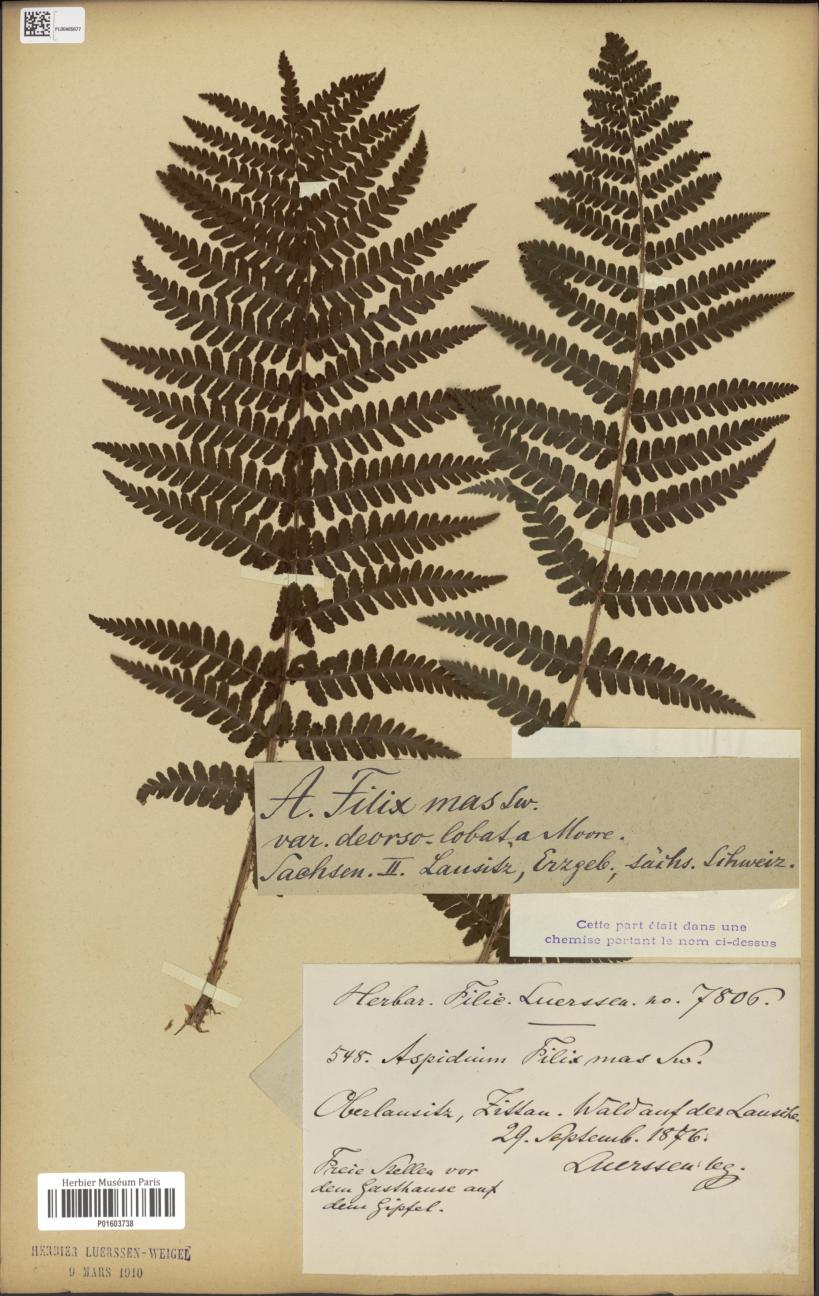 A. Filix mas Sw.
var. deorso-lobata Moore.
Sachsen. II. Lausitz, Erzgeb., sächs. Schweiz.
Cette part était dans une
chemise portant le nom ci-dessus
Herbar. Filic. Luerssen. no. 7806.
548. Aspidium Filix mas Sw.
Oberlausitz, Zittau. Wald auf der Lausche.
29. Septemb. 1876.
Luerssen leg.
Freie Stellen vor
dem Gasthause auf
dem Gipfel.
Herbier Muséum Paris
P01603738
HERBIER LUERSSEN-WEIGEL
9 MARS 1910